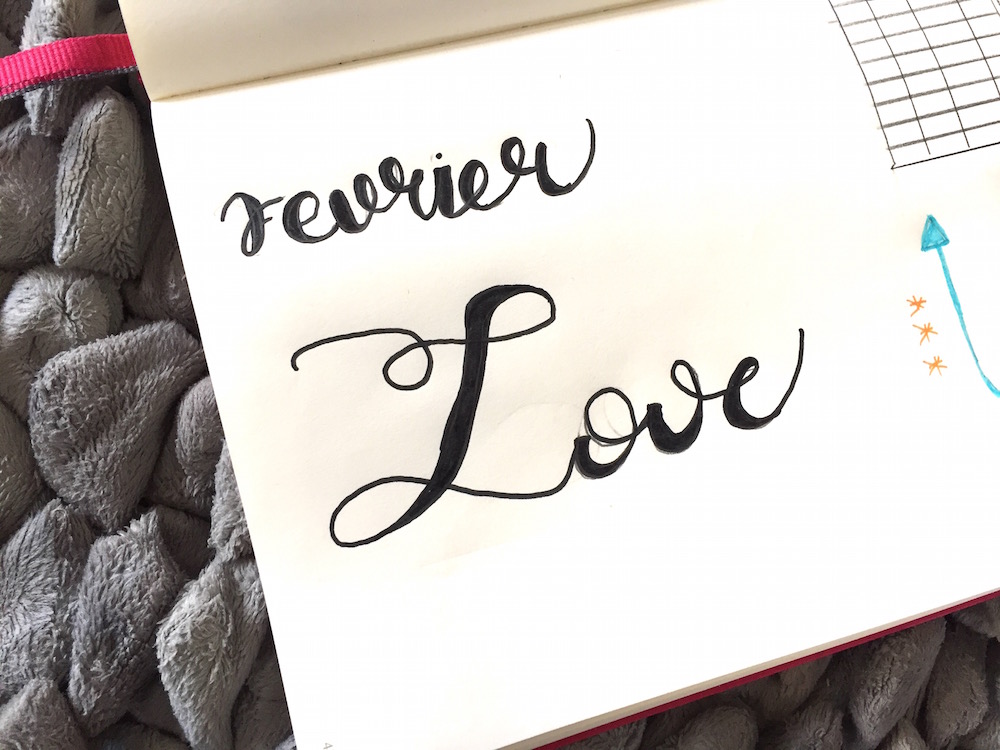 Fevrier
Love